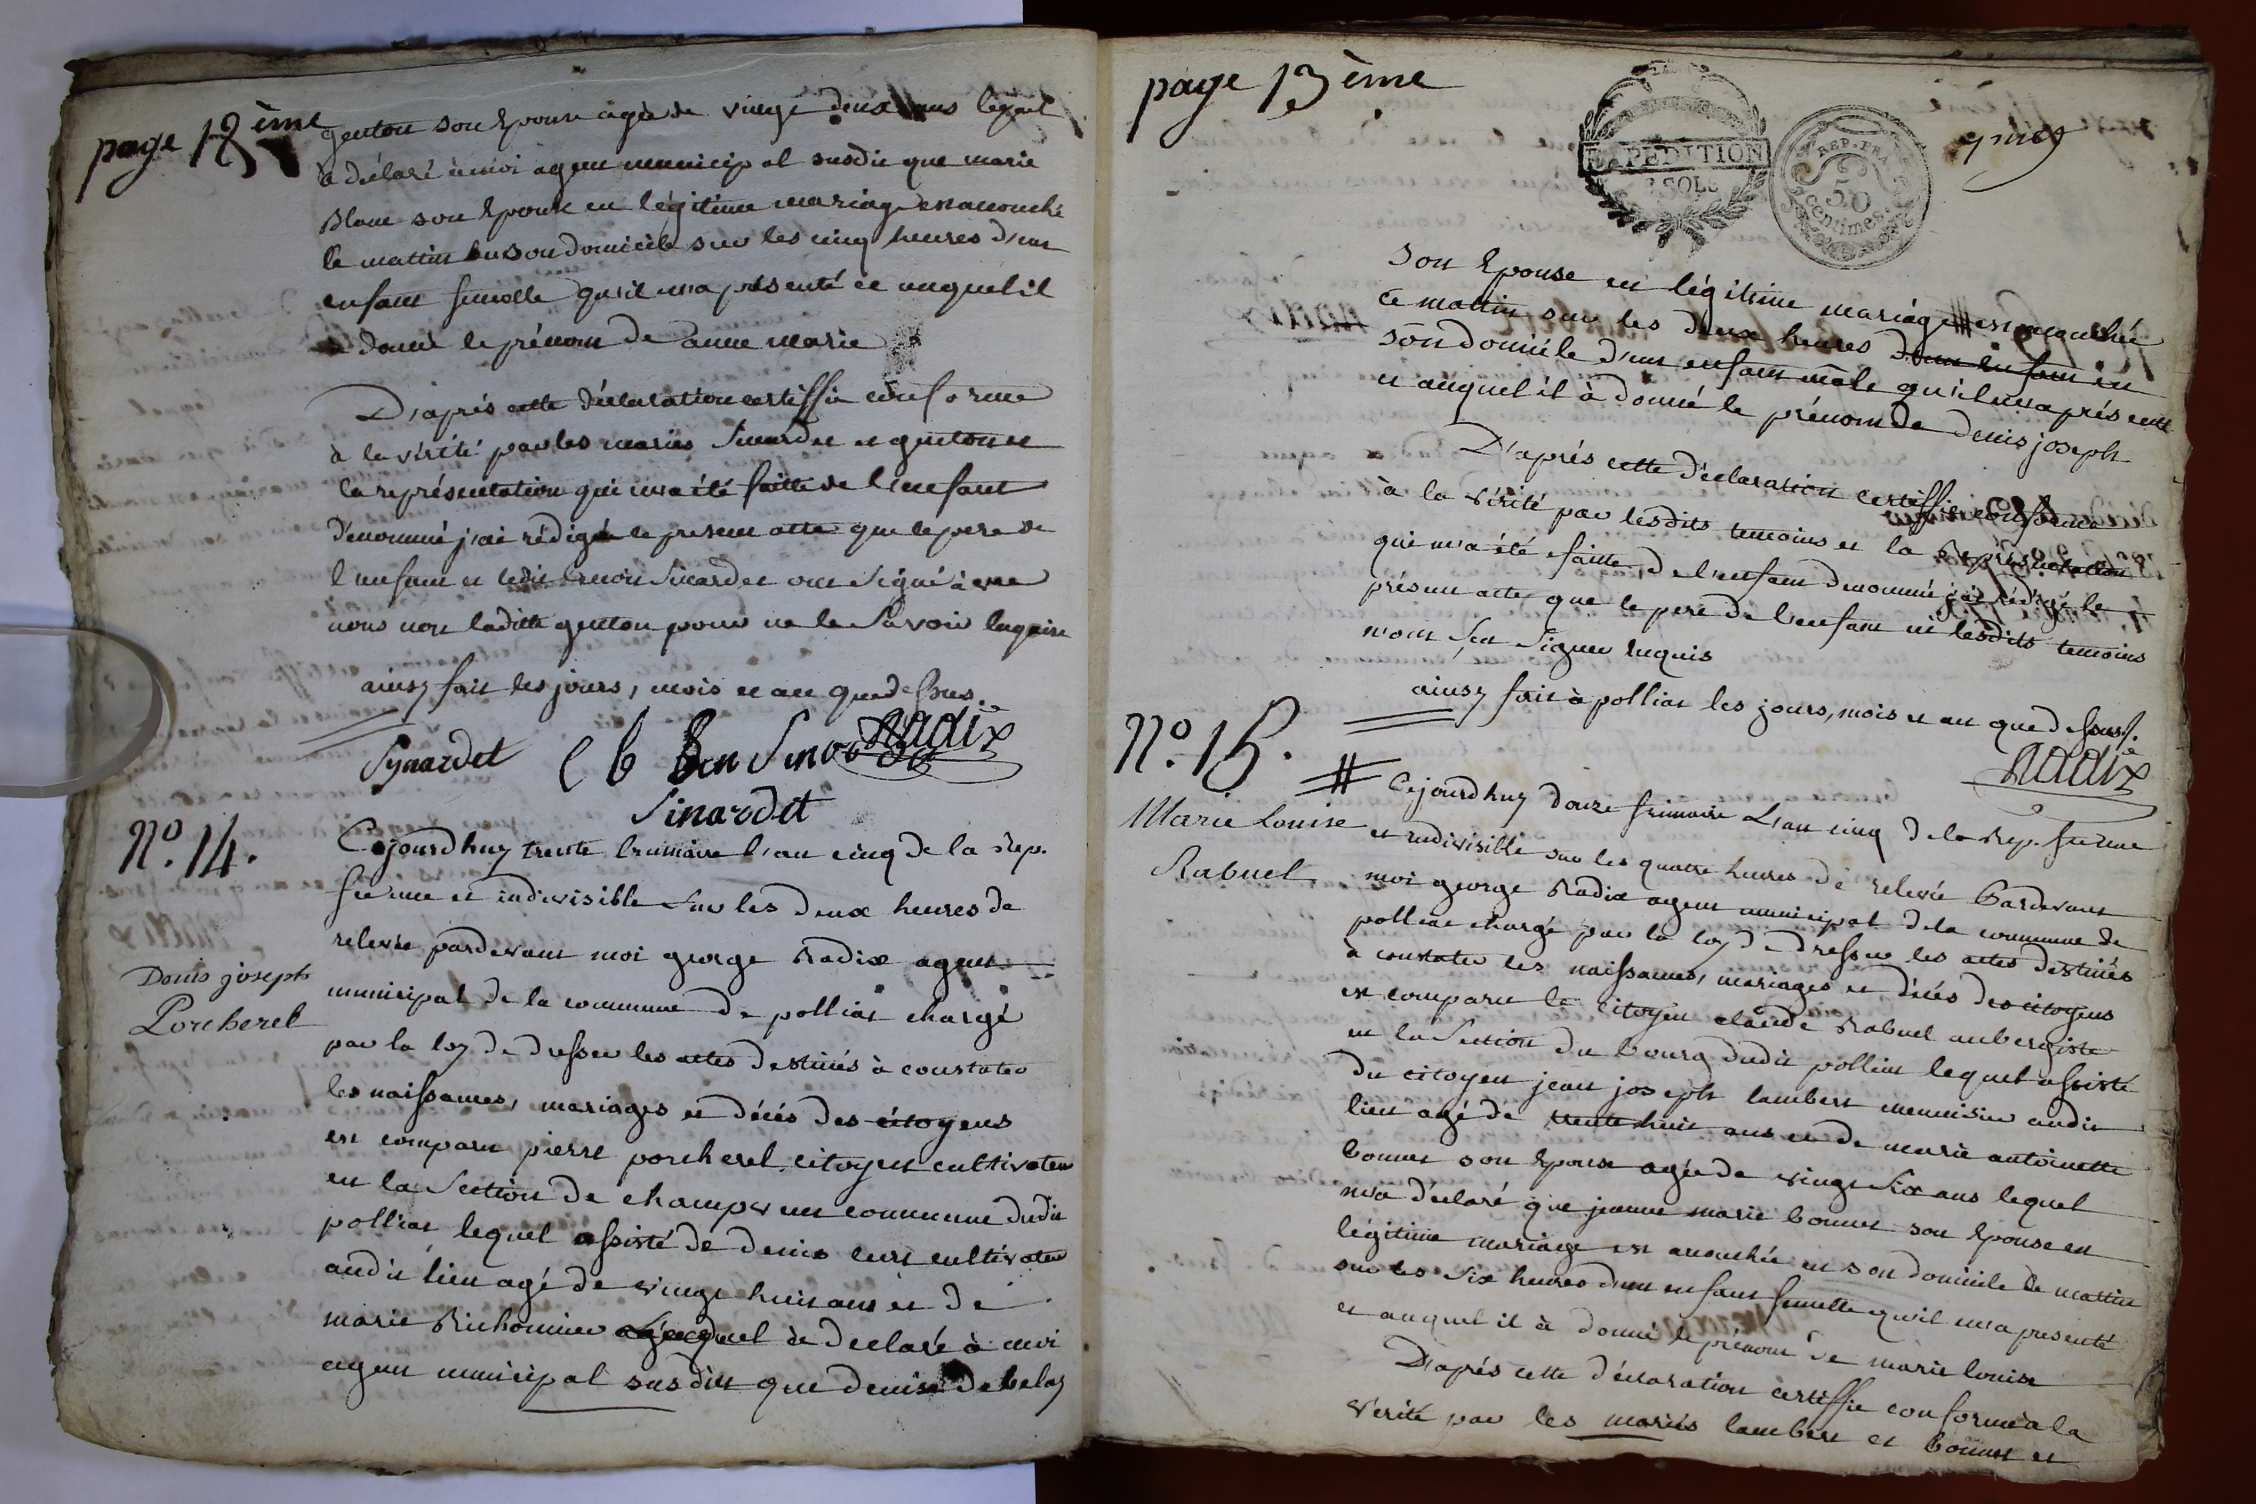 page 12 ème
genton son Epouse agée de vingt deux ans lequel
à déclaré à moi agent municipal susdit que marie
Blanc son Epouse en légitime mariage est accouché
le mattin en son domicile sur les cinq heures d'un
enfant femelle qu'il m'a présenté et auquel il
à donné le prénom de anne marie
D'aprés cette déclaration certiffie conforme
à la vérité par les mariés Sinardet et genton et
la représentation qui m'a été faitte de l'enfant
dénommé j'ai rédigé le present atte que le pere de
l'enfant et ledit Sinardet ont signé avec
nous non laditte genton pour ne le Savoir Enquise
ainsy fait les jours, mois et an que dessus.
Synardet C b Ben Sinardet Radix
Sinardet
N.º 14.
Denis joseph
Porcherel
Cejourdhuy trente brumaire l'an cinq de la Rép.
frenne et indivisible sur les deux heures de
relevée pardevant moi george Radix agent
municipal de la commune de polliat chargé
par la loy de dresser les attes destinés à constater
les naissances, mariages et décés des citoyens
est comparu pierre porcherel citoyen cultivateur
en la Section de champs commune dudit
polliat lequel assisté de denis cultivateur
audit lieu agé de vingt huit ans et de
marie Richonnier lequel à declaré à moi
agent municipal susdit que denise debelay
page 13 ème
EXPEDITION
SOLS
REP. FRA
50
centimes
Son Epouse en légitime mariage est accouchée
ce mattin sur les deux heures d'un enfant en
son domicile d'un enfant mâle qu'il m'a présenté
et auquel il à donné le prénom de denis joseph
D'aprés cette déclaration certiffie conforme
à la vérité par lesdits temoins et la Représentation
qui m'a été faitte de l'enfant denommé j'ai rédigé le
présent atte que le pere de l'enfant ni lesdits temoins
n'ont Sçu Signer Enquis
ainsy fait à polliat les jours, mois et an que dessus.
Radix
N.º 15.
Marie Louise
Rabuel
Cejourdhuy douze frimaire L'an cinq de la Rep. frenne
et indivisible sur les quatre heures de relevée Pardevant
moi george Radix agent municipal de la commune de
polliat chargé par la loy de dresser les attes destinés
à constater les naissances, mariages et décés des citoyens
est comparu le citoyen claude Rabuel aubergiste
en la Section du bourg dudit polliat lequel assisté
du citoyen jean joseph lambert menuisier audit
lieu agé de trente huit ans et de marie antoinette
bonnet son Epouse agée de vingt Six ans lequel
m'a déclaré que jeanne marie bonnet son Epouse en
légitime mariage est accouchée en son domicile Ce mattin
sur les Six heures d'un enfant femelle qu'il m'a presenté
et auquel il à donné le prénom de marie louise
D'aprés cette déclaration certiffie conforme à la
vérité par les mariés lambert et bonnet et